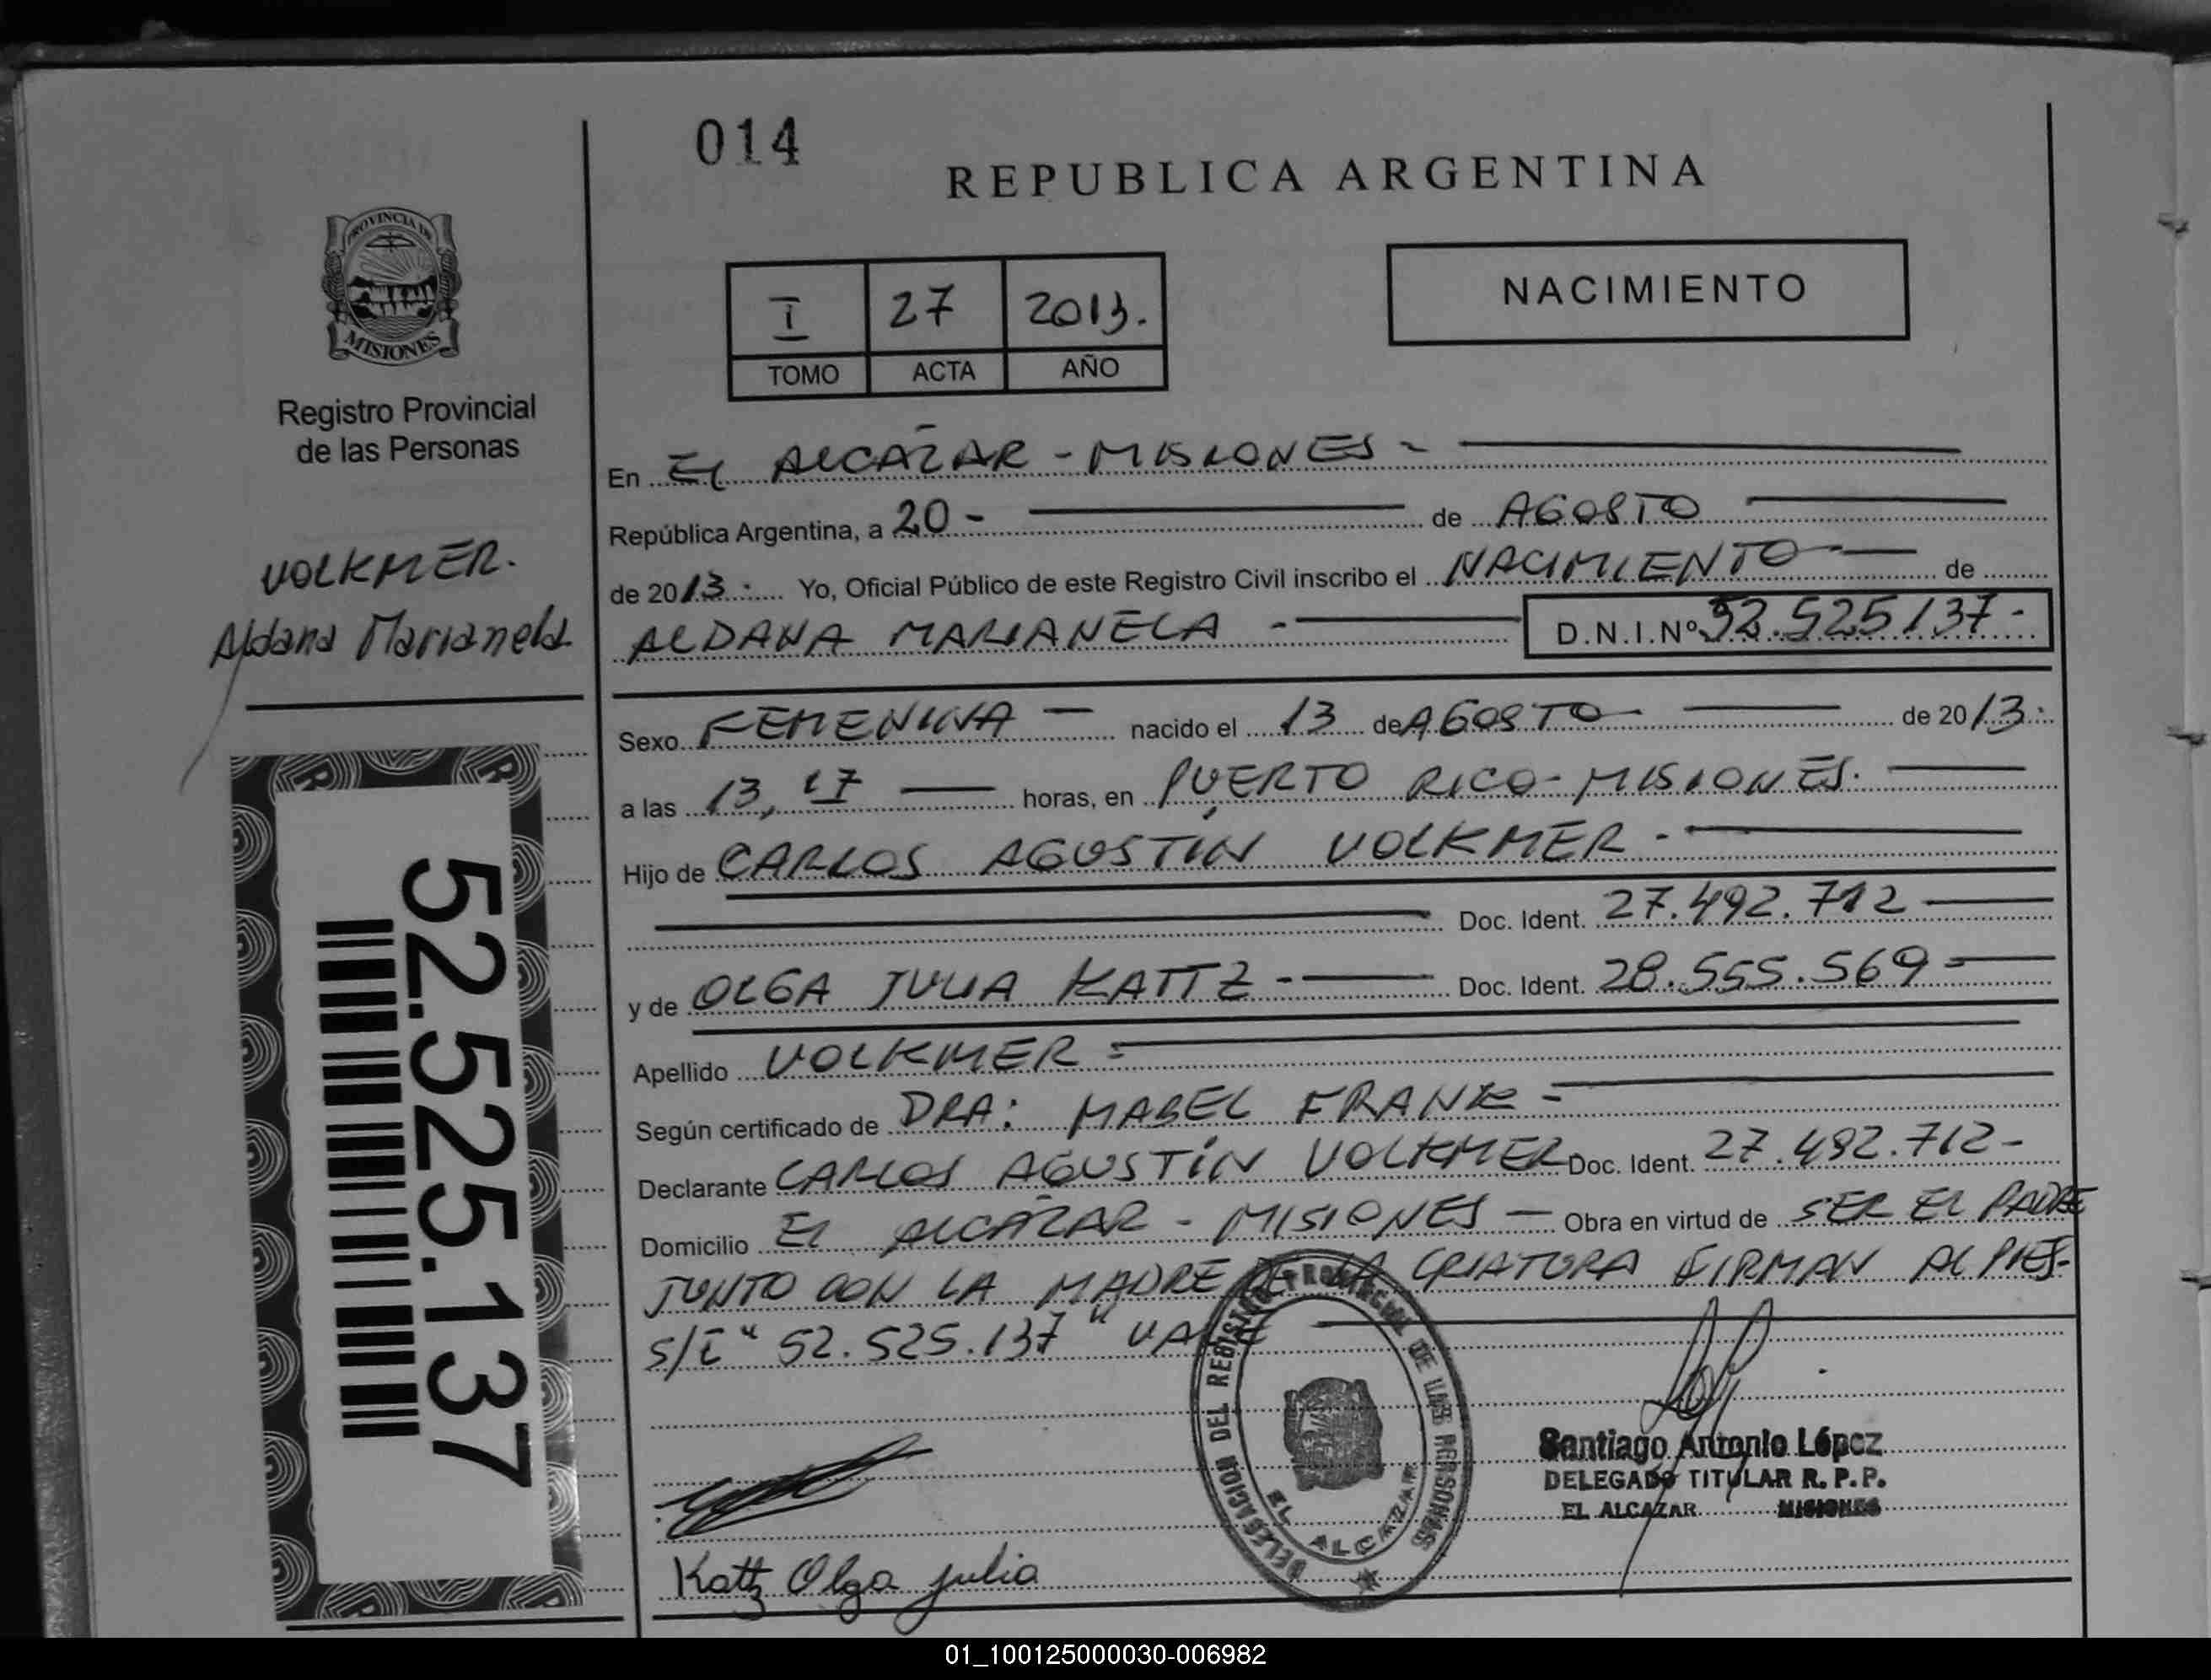 014
REPUBLICA ARGENTINA
PROVINCIA DE
MISIONES
Registro Provincial
de las Personas
I 27 2013.
TOMO ACTA AÑO
NACIMIENTO
VOLKMER.
Aldana Marianela
52.525.137
En EL ALCAZAR - MISIONES -
República Argentina, a 20 - de AGOSTO
de 2013. Yo, Oficial Público de este Registro Civil inscribo el NACIMIENTO de
ALDANA MARIANELA - D.N.I.Nº 52.525137-
Sexo FEMENINA nacido el 13 de AGOSTO de 2013.
a las 13, 17 horas, en PUERTO RICO - MISIONES.
Hijo de CARLOS AGUSTIN VOLKMER -
Doc. Ident. 27.492.712
y de OLGA JULIA KATTZ - Doc. Ident. 28.555.569
Apellido VOLKMER
Según certificado de DRA: MABEL FRANK
Declarante CARLOS AGUSTÍN VOLKMER Doc. Ident. 27.492.712-
Domicilio EL ALCAZAR - MISIONES Obra en virtud de SER EL PADRE
JUNTO CON LA MADRE DE LA CRIATURA FIRMAN AL PIE.
S/I "52.525.137" VALE
DELEGACION DEL REGISTRO PROVINCIAL DE LAS PERSONAS
EL ALCAZAR
Santiago Antonio López
DELEGADO TITULAR R. P. P.
EL ALCAZAR MISIONES
Kattz Olga julia
01_100125000030-006982